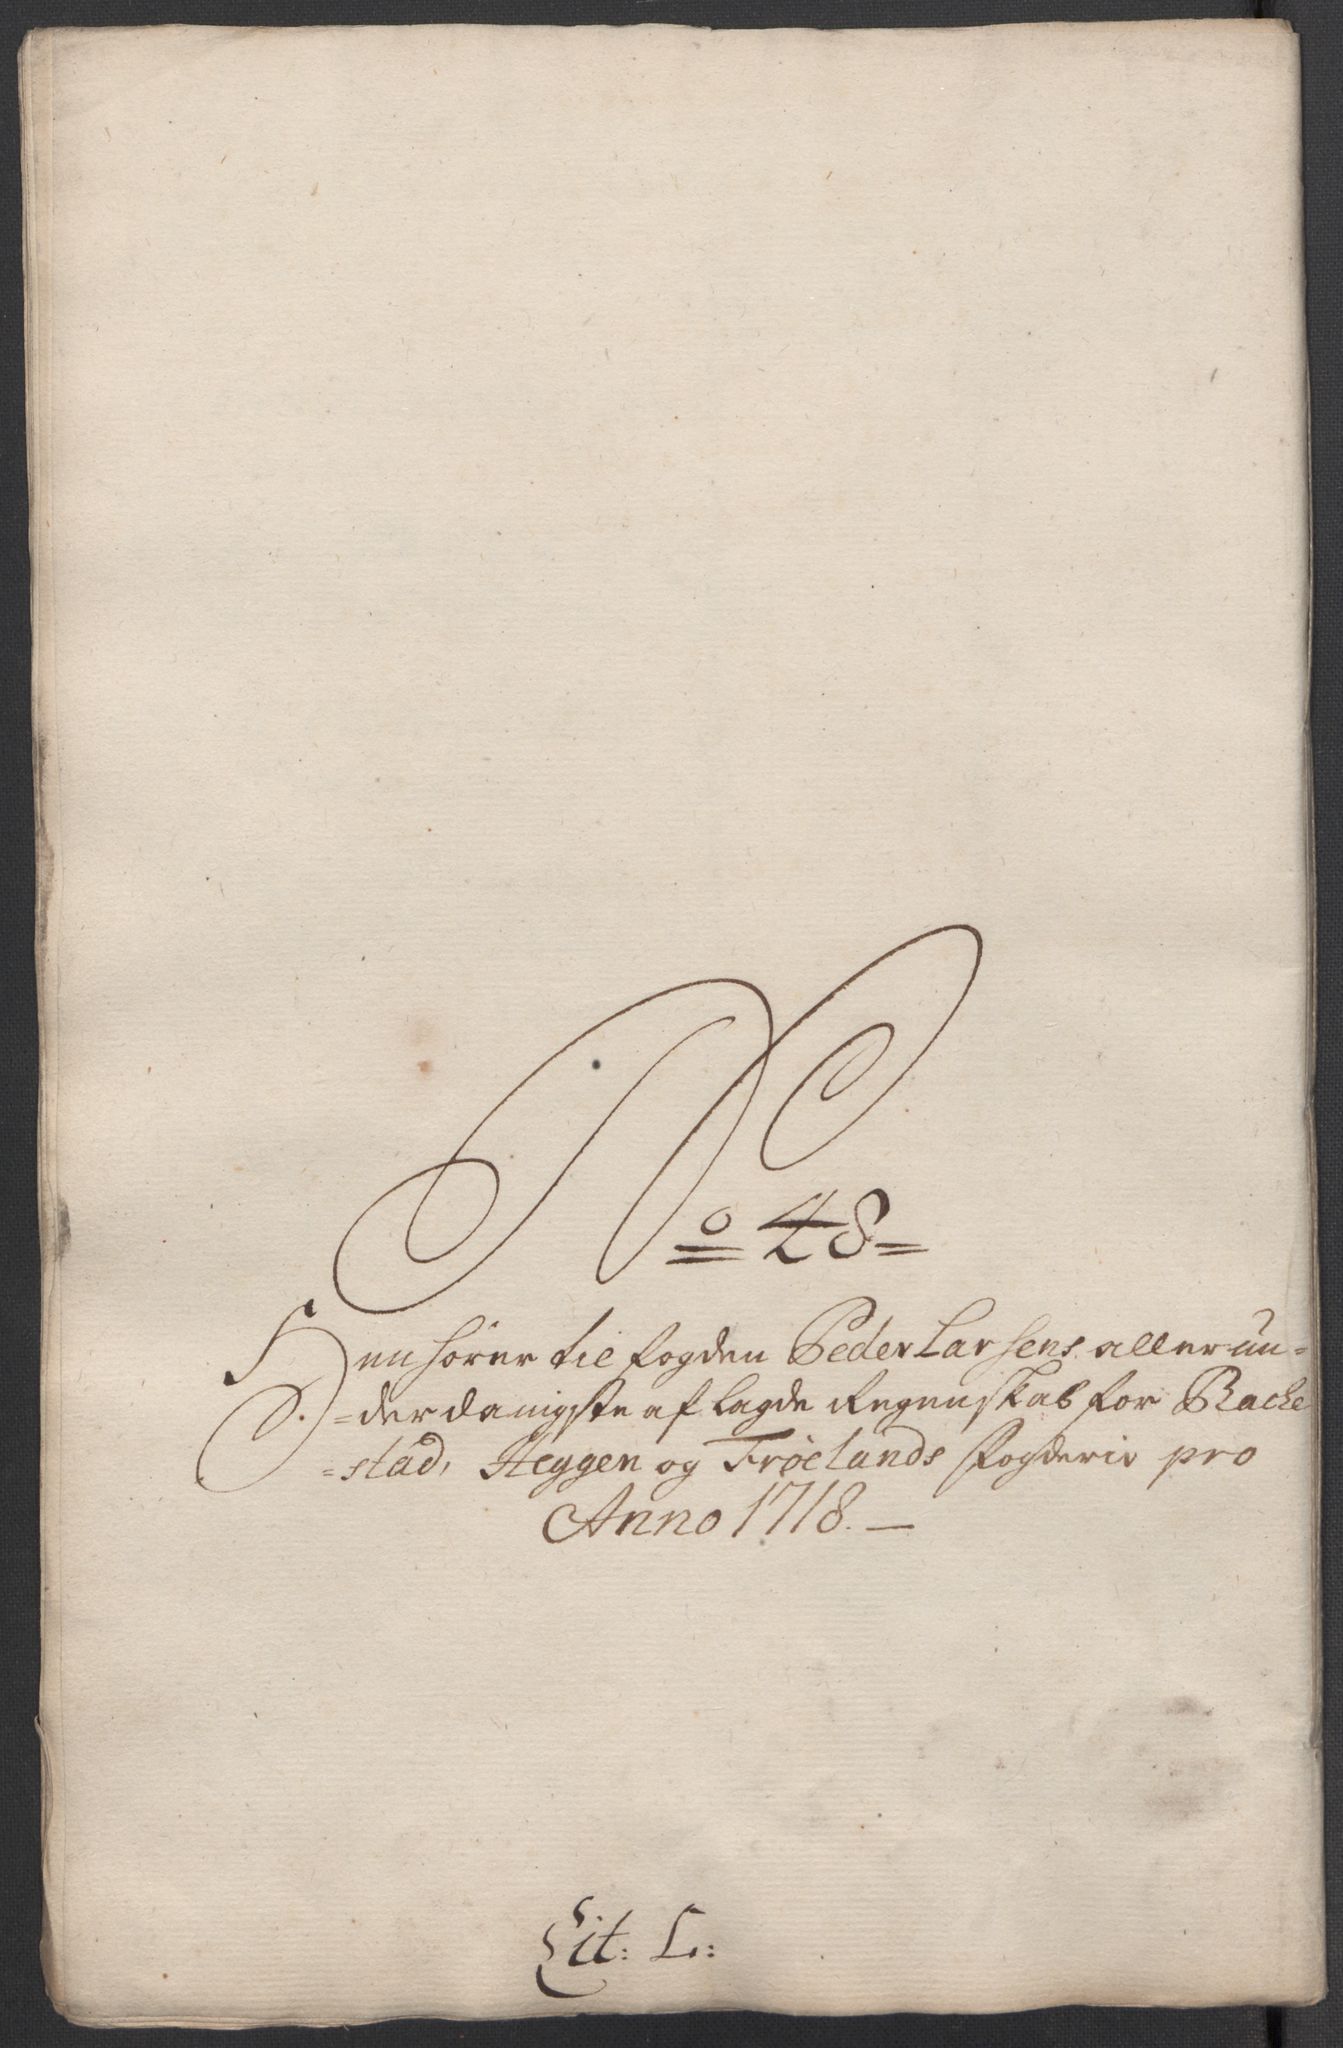 No 48
Henhører til fogden Peder Larsens allerun=
=derdanigste aflagde Regenskab for Racke
=stad, Heggen og Frøelands Fogderie pro
Anno 1718. —
Lit: L: